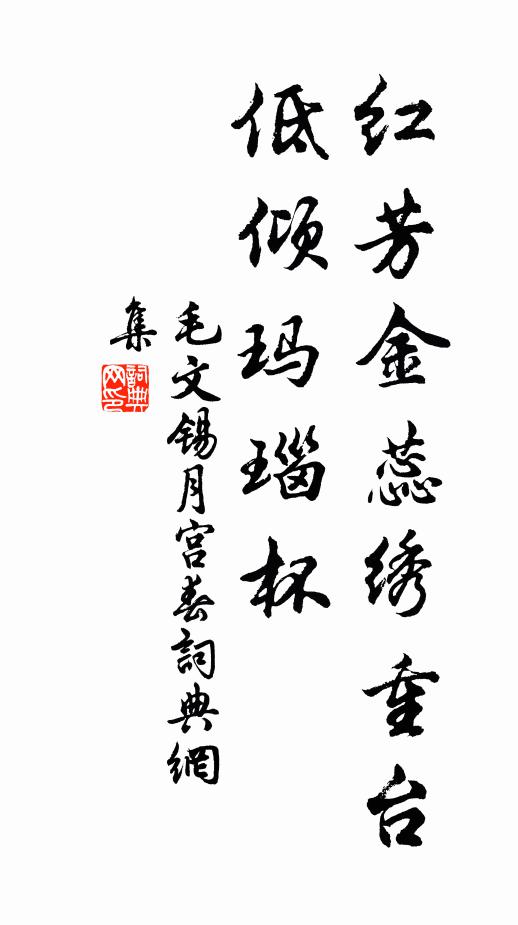 红芳金蕊绣重台
低倾玛瑙杯
毛文锡月宫春詞典網
集
詞典网印